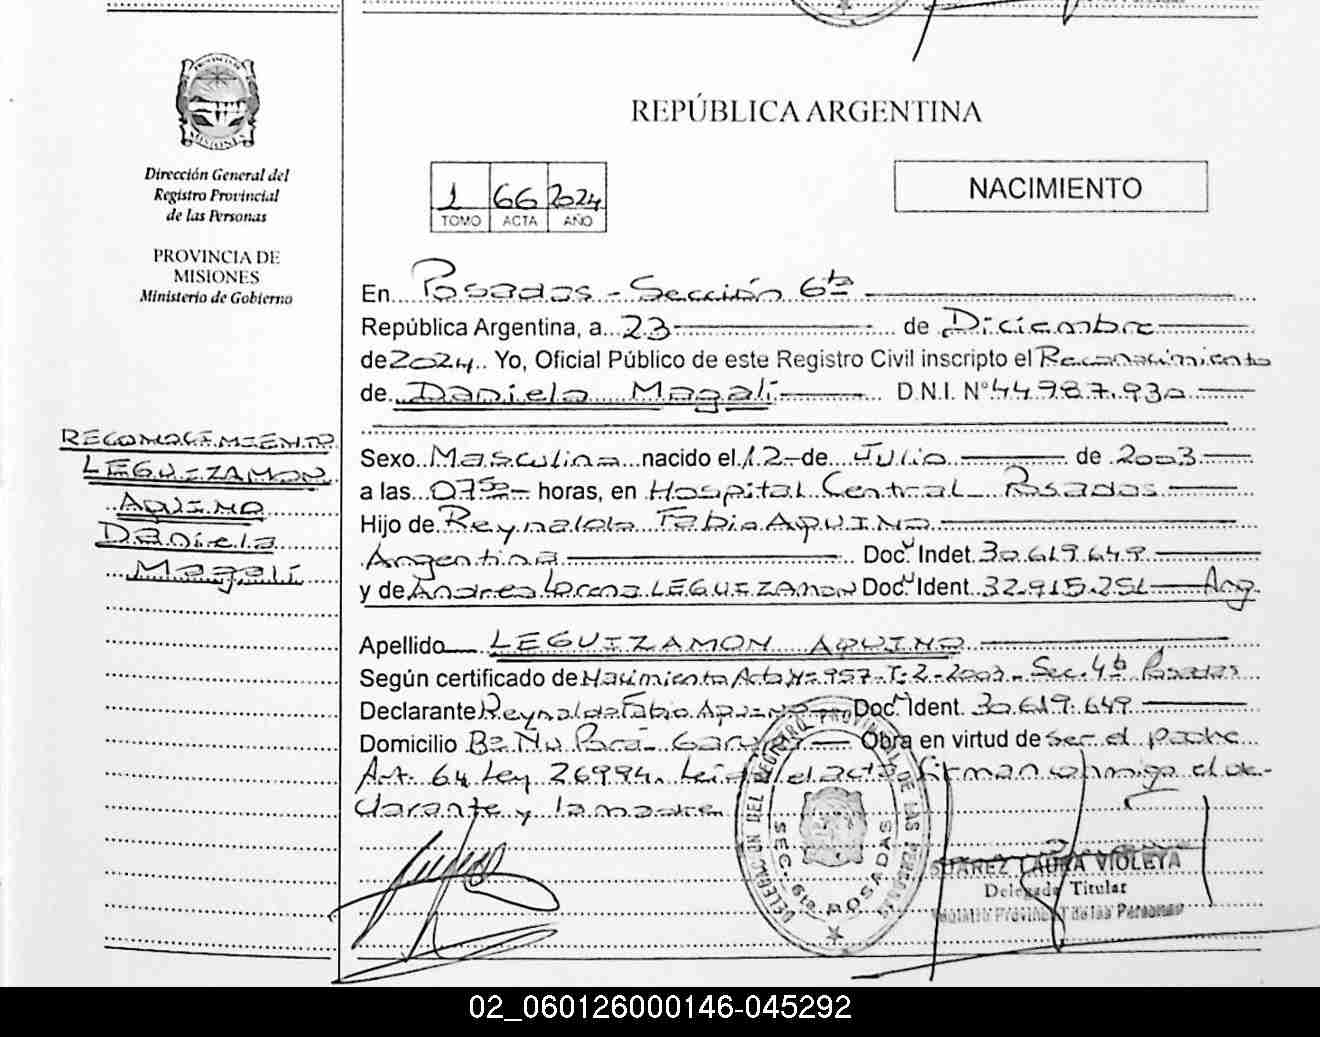 REPÚBLICA ARGENTINA
PROVINCIA DE MISIONES
Dirección General del
Registro Provincial
de las Personas
PROVINCIA DE
MISIONES
Ministerio de Gobierno
1 66 2024
TOMO ACTA AÑO
NACIMIENTO
En Posadas - Sección 6ta
República Argentina, a 23 de Diciembre
de 2024 Yo, Oficial Público de este Registro Civil inscripto el Reconocimiento
de Daniela Magali D.N.I. N° 44.987.930
Sexo Masculino nacido el 12 de Julio de 2003
a las 07 50 horas, en Hospital Central Posadas
Hijo de Reynaldo Fabio AQUINO
Argentina Doc. Indet. 30.619.649
y de Andrea Lorena LEGUIZAMON Doc. Ident. 32.915.251 Arg.
Apellido LEGUIZAMON AQUINO
Según certificado de Nacimiento Acta N° 957 - T: 2 - 2003 - Sec. 4ta Posadas
Declarante Reynaldo Fabio Aquino Doc. Ident. 30.619.649
Domicilio B° Ñu Porá - Garupá Obra en virtud de ser el padre
Art. 64 Ley 26994. Leida el acta firman conmigo el de-
clarante y la madre
RECONOCIMIENTO
LEGUIZAMON
AQUINO
Daniela
Magali
DELEGACION DEL REGISTRO PROVINCIAL DE LAS PERSONAS
SEC. 6ta POSADAS
SUAREZ LAURA VIOLETA
Delegada Titular
Registro Provincial de las Personas
02_060126000146-045292